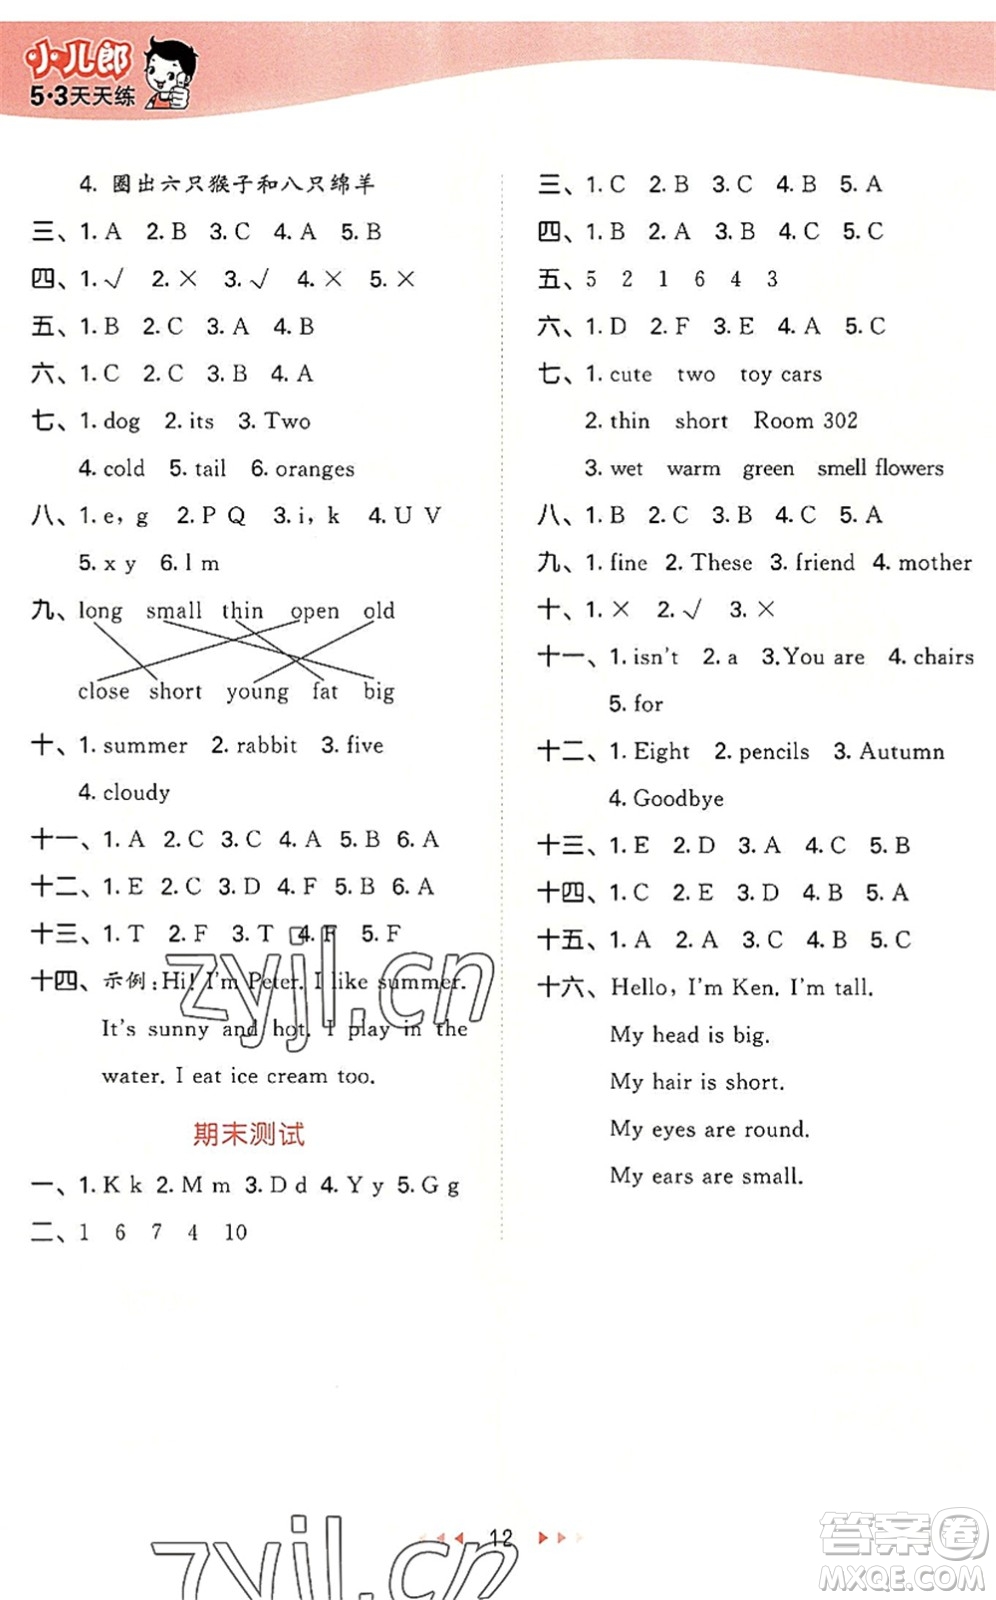 小儿郎
5·3天天练
4. 圈出六只猴子和八只绵羊
三、1. A 2. B 3. C 4. A 5. B
四、1. √ 2. × 3. √ 4. × 5. ×
五、1. B 2. C 3. A 4. B
六、1. C 2. C 3. B 4. A
七、1. dog 2. its 3. Two
4. cold 5. tail 6. oranges
八、1. e, g 2. P Q 3. i, k 4. U V
5. x y 6. l m
九、long small thin open old
close short young fat big
十、1. summer 2. rabbit 3. five
4. cloudy
十一、1. A 2. C 3. C 4. A 5. B 6. A
十二、1. E 2. C 3. D 4. F 5. B 6. A
十三、1. T 2. F 3. T 4. F 5. F
十四、示例: Hi! I'm Peter. I like summer.
It's sunny and hot. I play in the
water. I eat ice cream too.
期末测试
一、1. K k 2. M m 3. D d 4. Y y 5. G g
二、1 6 7 4 10
三、1. C 2. B 3. C 4. B 5. A
四、1. B 2. A 3. B 4. C 5. C
五、5 2 1 6 4 3
六、1. D 2. F 3. E 4. A 5. C
七、1. cute two toy cars
2. thin short Room 302
3. wet warm green smell flowers
八、1. B 2. C 3. B 4. C 5. A
九、1. fine 2. These 3. friend 4. mother
十、1. × 2. √ 3. ×
十一、1. isn't 2. a 3. You are 4. chairs
5. for
十二、1. Eight 2. pencils 3. Autumn
4. Goodbye
十三、1. E 2. D 3. A 4. C 5. B
十四、1. C 2. E 3. D 4. B 5. A
十五、1. A 2. A 3. C 4. B 5. C
十六、Hello, I'm Ken. I'm tall.
My head is big.
My hair is short.
My eyes are round.
My ears are small.
12
zyjl.cn
zyjl.cn
答案圈
MXQE.COM